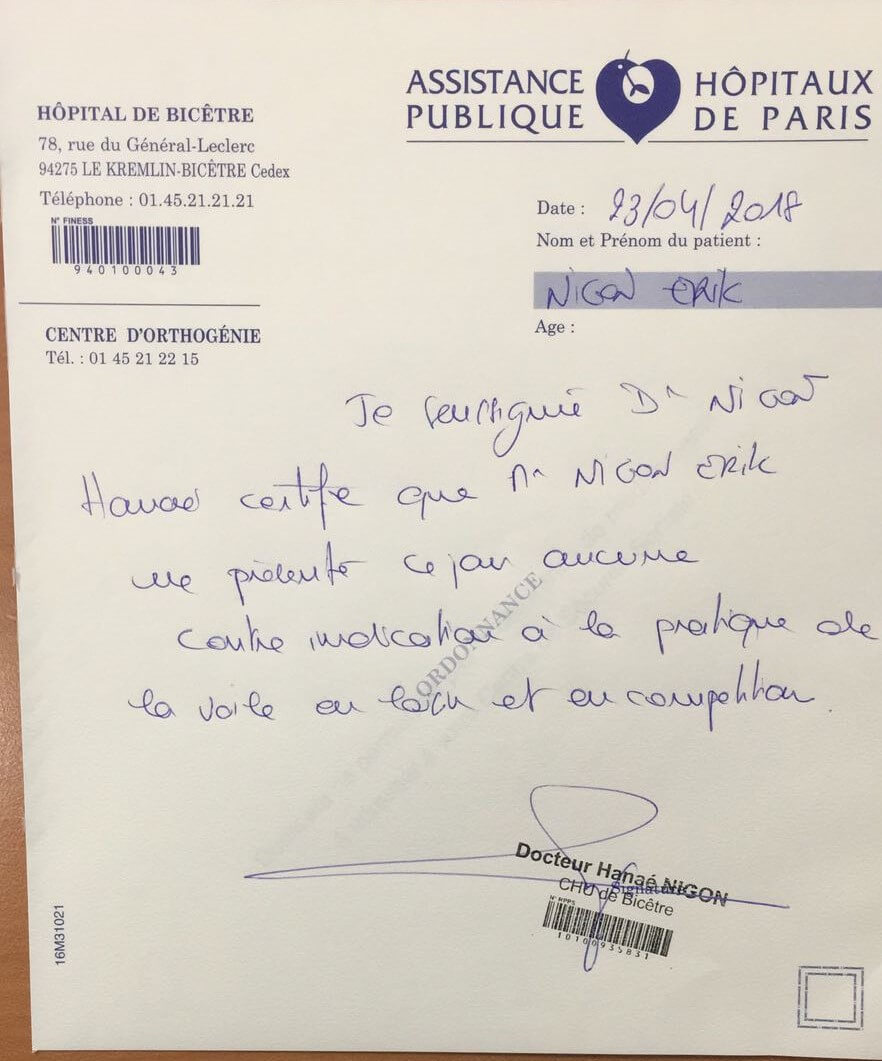 ASSISTANCE PUBLIQUE
HÔPITAUX DE PARIS
HÔPITAL DE BICÊTRE
78, rue du Général-Leclerc
94275 LE KREMLIN-BICÊTRE Cedex
Téléphone : 01.45.21.21.21
N° FINESS
940100043
CENTRE D'ORTHOGÉNIE
Tél. : 01 45 21 22 15
Date : 23/04/2018
Nom et Prénom du patient :
NIGON ERIK
Age :
Je soussignée Dr NIGON
Hanaé certifie que Mr NIGON ERIK
ne présente ce jour aucune
contre indication à la pratique de
la voile en loisir et en compétition.
ORDONNANCE
Docteur Hanaé NIGON
Signature
CHU de Bicêtre
N° RPPS
10100935831
16M31021